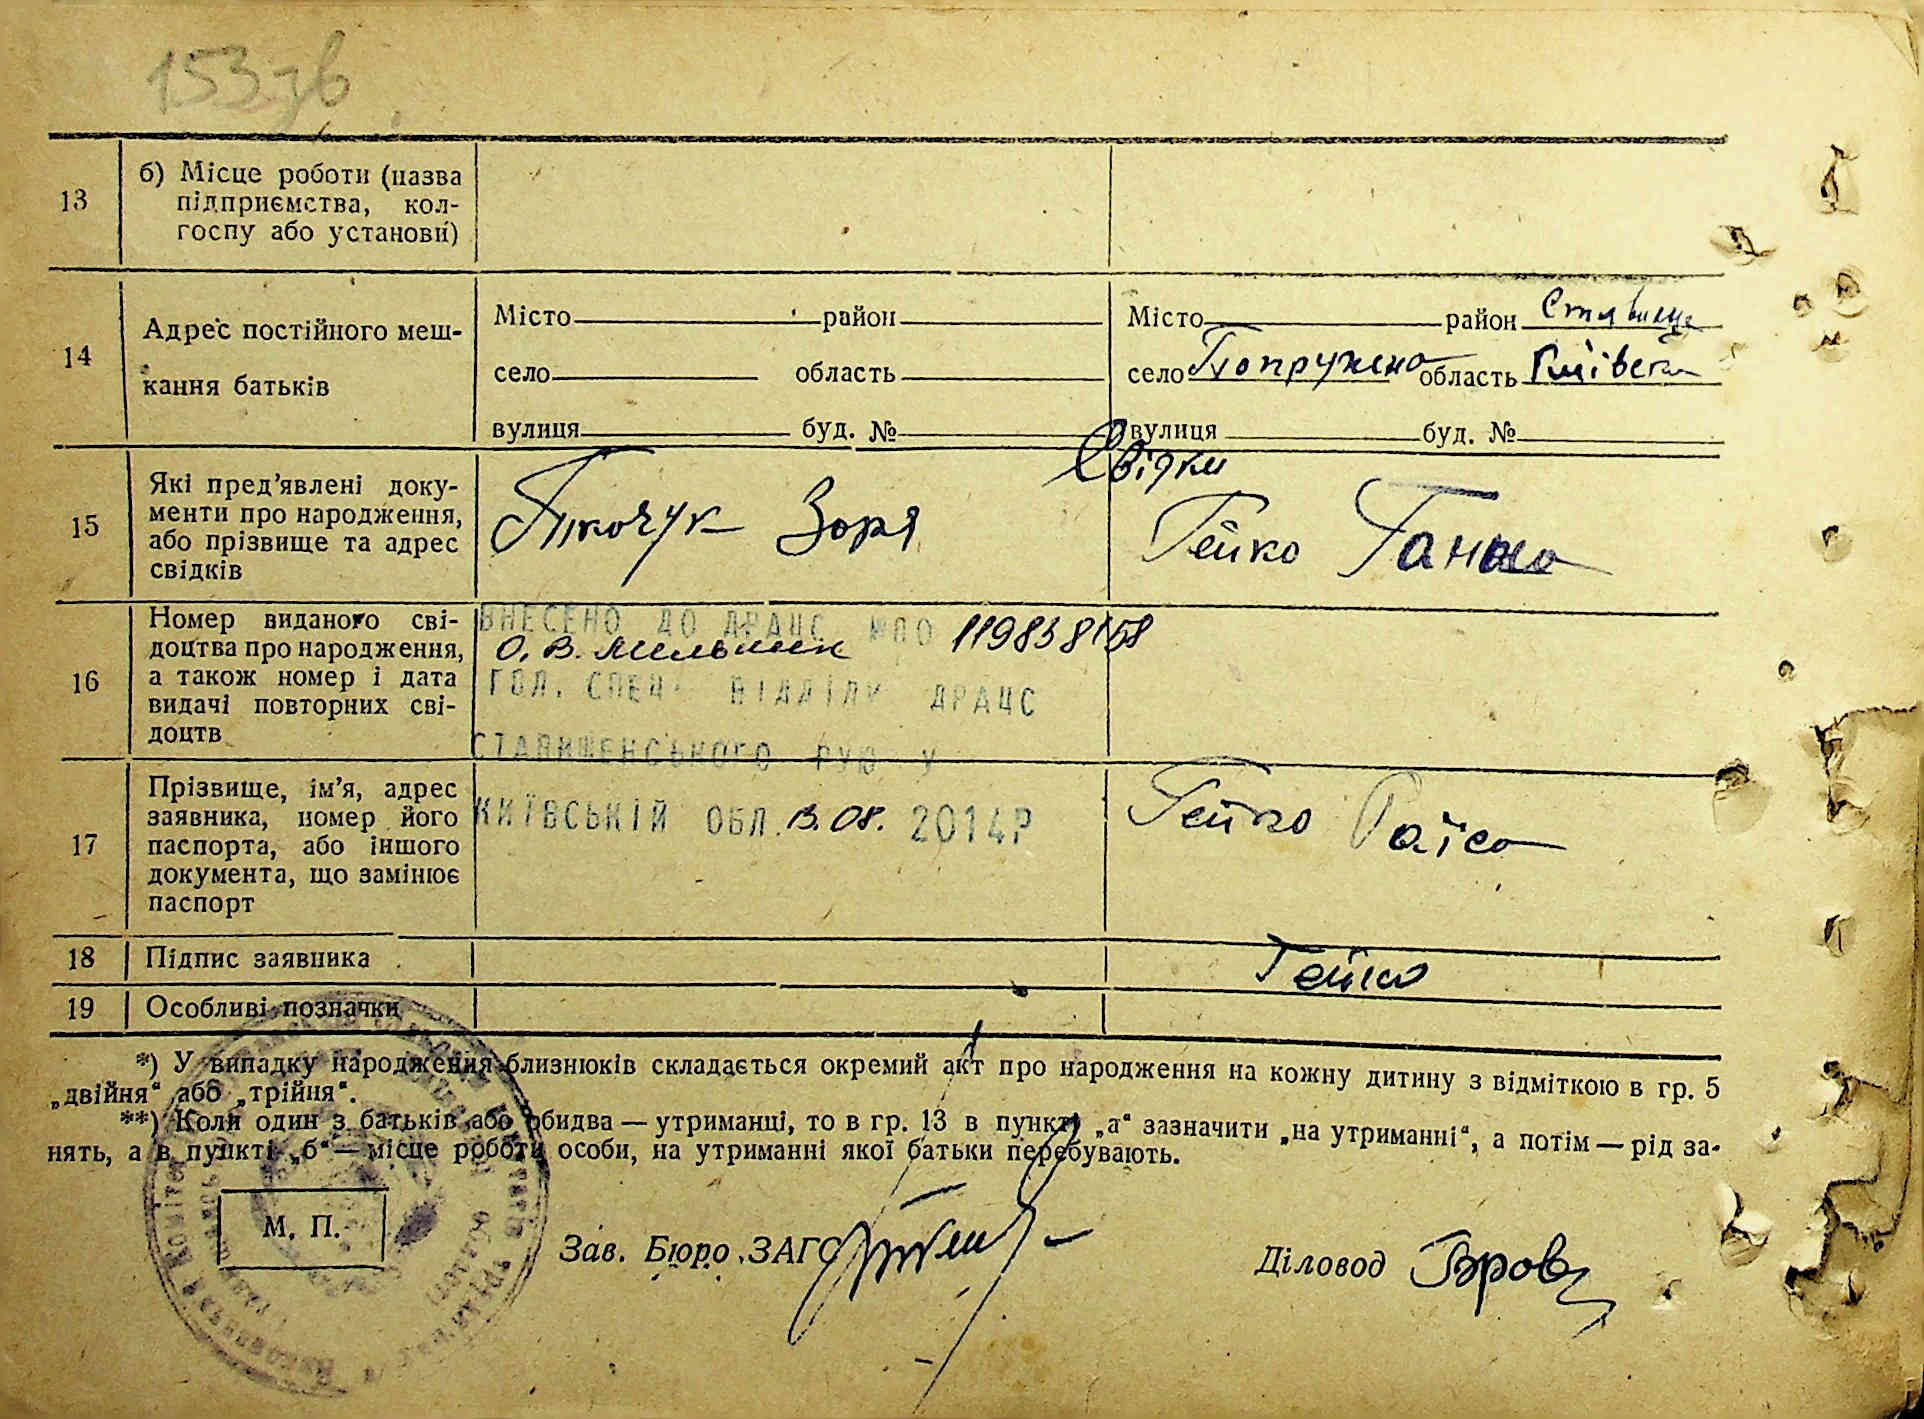 153 зв
13
б) Місце роботи (назва
підприємства, кол-
госпу або установи)
14
Адрес постійного меш-
кання батьків
Місто район
село область
вулиця буд. №
Місто район Ставище
село Попружна область Київськ
вулиця буд. №
15
Які пред'явлені доку-
менти про народження,
або прізвище та адрес
свідків
Свідки
Ткачук Зоря
Гейко Ганна
16
Номер виданого сві-
доцтва про народження,
а також номер і дата
видачі повторних сві-
доцтв
ВНЕСЕНО ДО ДРАЦС №00 119838158
О. В. Мельник
ГОЛ. СПЕЦ. ВІДДІЛУ ДРАЦС
СТАВИЩЕНСЬКОГО РУЮ У
КИЇВСЬКІЙ ОБЛ. 13.08. 2014Р
17
Прізвище, ім'я, адрес
заявника, номер його
паспорта, або іншого
документа, що замінює
паспорт
Гейко Раїса
18
Підпис заявника
Гейко
19
Особливі позначки
*) У випадку народження близнюків складається окремий акт про народження на кожну дитину з відміткою в гр. 5
„двійня“ або „трійня“.
**) Коли один з батьків або обидва — утриманці, то в гр. 13 в пункті „а“ зазначити „на утриманні“, а потім — рід за-
нять, а в пункті „б“ — місце роботи особи, на утриманні якої батьки перебувають.
М. П.
Зав. Бюро ЗАГС
Діловод